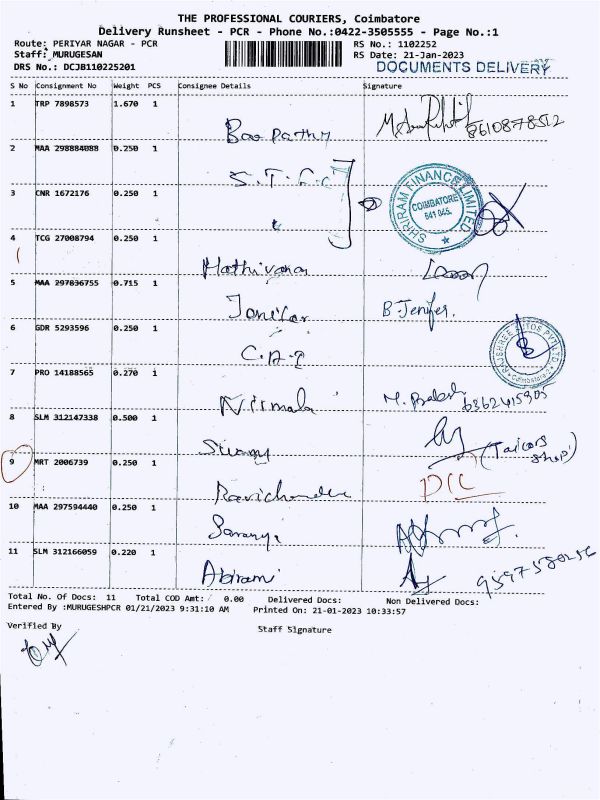 THE PROFESSIONAL COURIERS, Coimbatore
Delivery Runsheet - PCR - Phone No.:0422-3505555 - Page No.:1
Route: PERIYAR NAGAR - PCR RS No.: 1102252
Staff: MURUGESAN RS Date: 21-Jan-2023
DRS No.: DCJB110225201 DOCUMENTS DELIVERY
S No Consignment No Weight PCS Consignee Details Signature
1 TRP 7898573 1.670 1
8610878512
2 MAA 298884088 0.250 1
S.T.F.C
3 CNR 1672176 0.250 1
SHRIRAM FINANCE LIMITED
COIMBATORE
641 045.
4 TCG 27008794 0.250 1
Mathivanan
5 MAA 297836755 0.715 1
Jenifar B.Jenifer.
6 GDR 5293596 0.250 1
7 PRO 14188565 0.270 1
Nirmala
8 SLM 312147338 0.500 1
(Tailors shop)
9 MRT 2006739 0.250 1
Ravichander
10 MAA 297594440 0.250 1
Saranya
11 SLM 312166059 0.220 1
Abirami 9597580256
Total No. Of Docs: 11 Total COD Amt: 0.00 Delivered Docs: Non Delivered Docs:
Entered By :MURUGESHPCR 01/21/2023 9:31:10 AM Printed On: 21-01-2023 10:33:57
Verified By Staff Signature